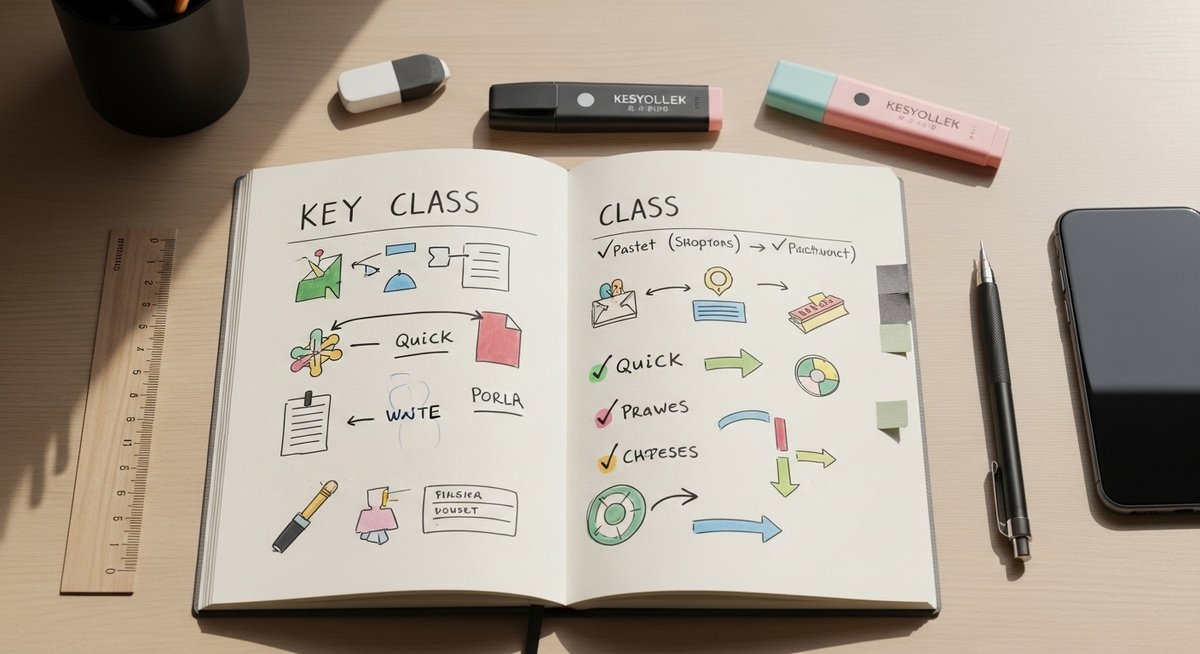 KESYOLLEK
KESYOLLEK
KEY CLASS
QUICK
WNTE
PORLA
CLASS
✓Pastet (Shoptons) → ✓
✓ QUICK
✓ PRAWES
✓ CHPESES
VOUSET